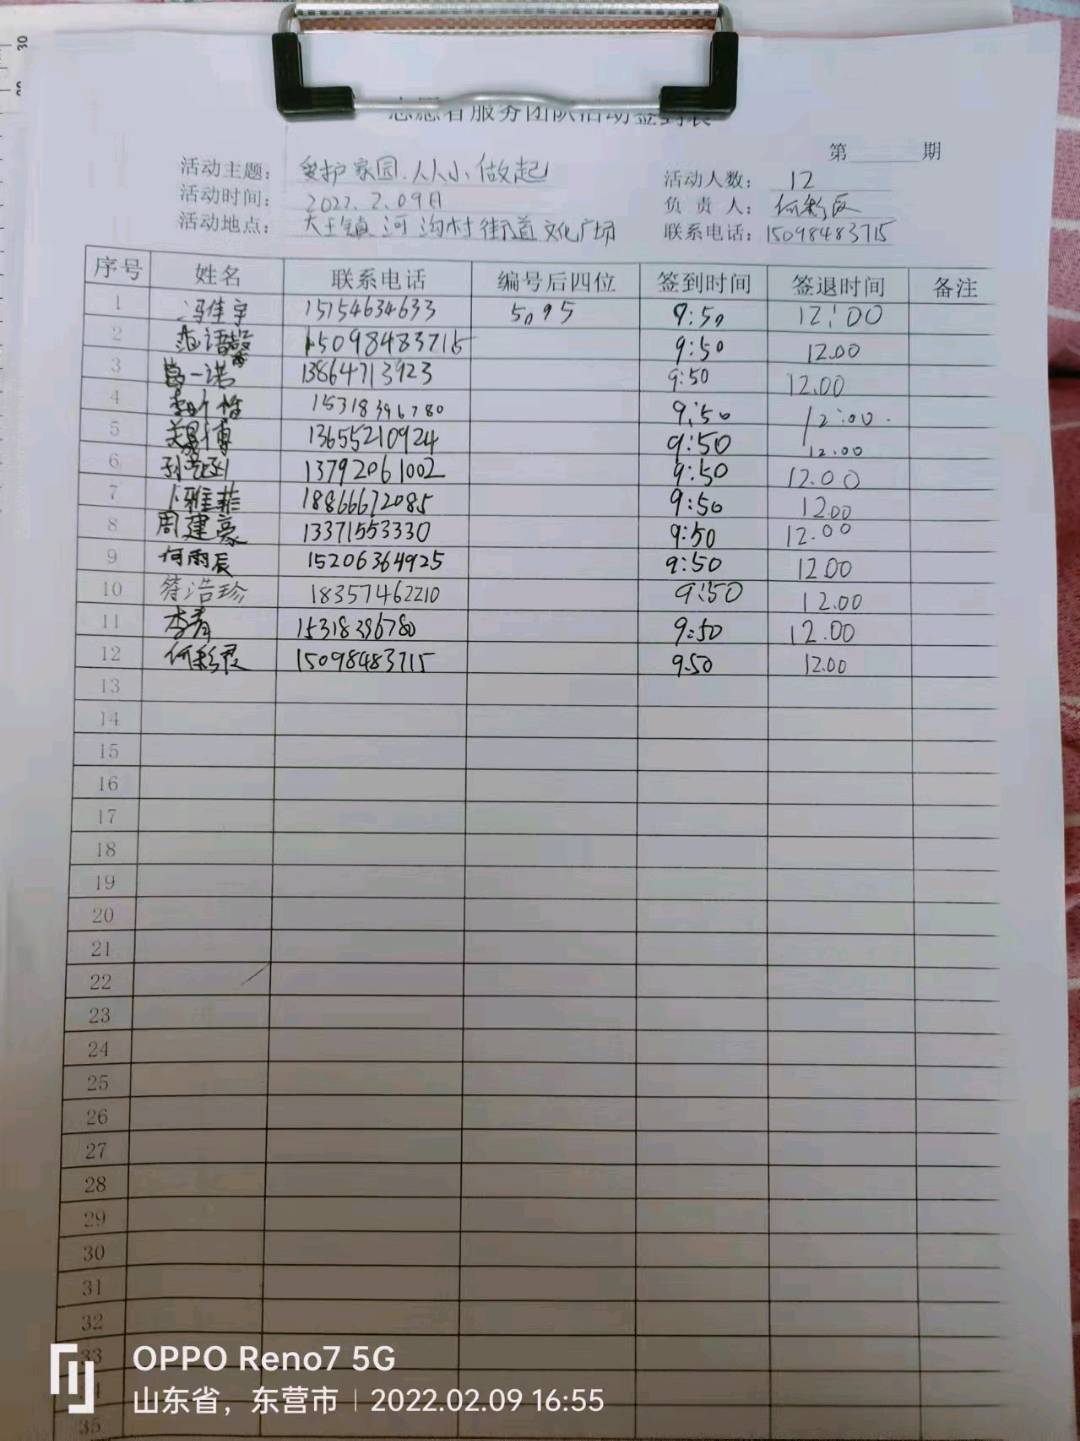 志愿者服务团队活动签到表
第 期
活动主题: 爱护家园.从小做起
活动人数: 12
活动时间: 2022.2.09日
负责人: 何彩
活动地点: 大王镇河沟村街道文化广场
联系电话: 15098483715
序号 姓名 联系电话 编号后四位 签到时间 签退时间 备注
1 冯佳宇 15154634633 5095 9:50 12:00
2 语馨 15098483715 9:50 12.00
3 一诺 13864713923 9:50 12.00
4 李 15318396780 9:50 12:00.
5 博 13655210924 9:50 12.00
6 孙 13792061002 9:50 12.00
7 雅菲 18866672085 9:50 12.00
8 周建豪 13371553330 9:50 12.00
9 何雨辰 15206364925 9:50 12.00
10 浩珍 18357462210 9:50 12.00
11 李青 15318396780 9:50 12.00
12 何彩 15098483715 9.50 12.00
13
14
15
16
17
18
19
20
21
22
23
24
25
26
27
28
29
30
31
32
33
35
OPPO Reno7 5G
山东省，东营市 | 2022.02.09 16:55
30